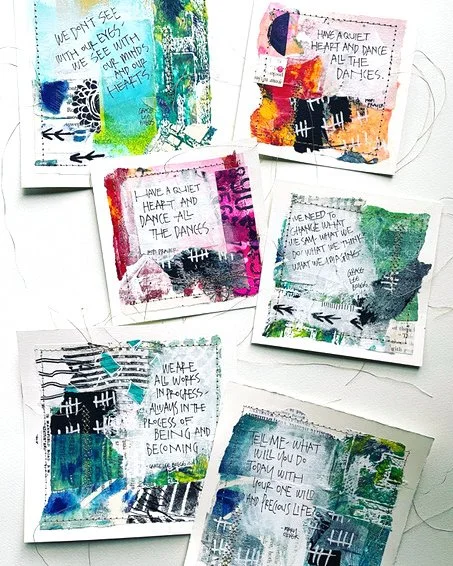 WE DON'T SEE
WITH OUR EYES
WE SEE WITH
OUR MINDS
AND OUR
HEARTS.
GRACE
LEE
BOGGS
HAVE A QUIET
HEART AND DANCE
ALL THE
DANCES.
HAVE A QUIET
HEART AND
DANCE ALL
THE DANCES.
WE NEED TO
CHANGE WHAT
WE SAY, WHAT WE
DO, WHAT WE THINK,
WHAT WE IMAGINE.
GRACE
LEE
BOGGS
WE ARE
ALL WORKS
IN PROGRESS-
ALWAYS IN THE
PROCESS OF
BEING AND
BECOMING.
GRACE LEE BOGGS
TELL ME- WHAT
WILL YOU DO
TODAY WITH
YOUR ONE WILD
AND PRECIOUS LIFE?
-MARY
OLIVER